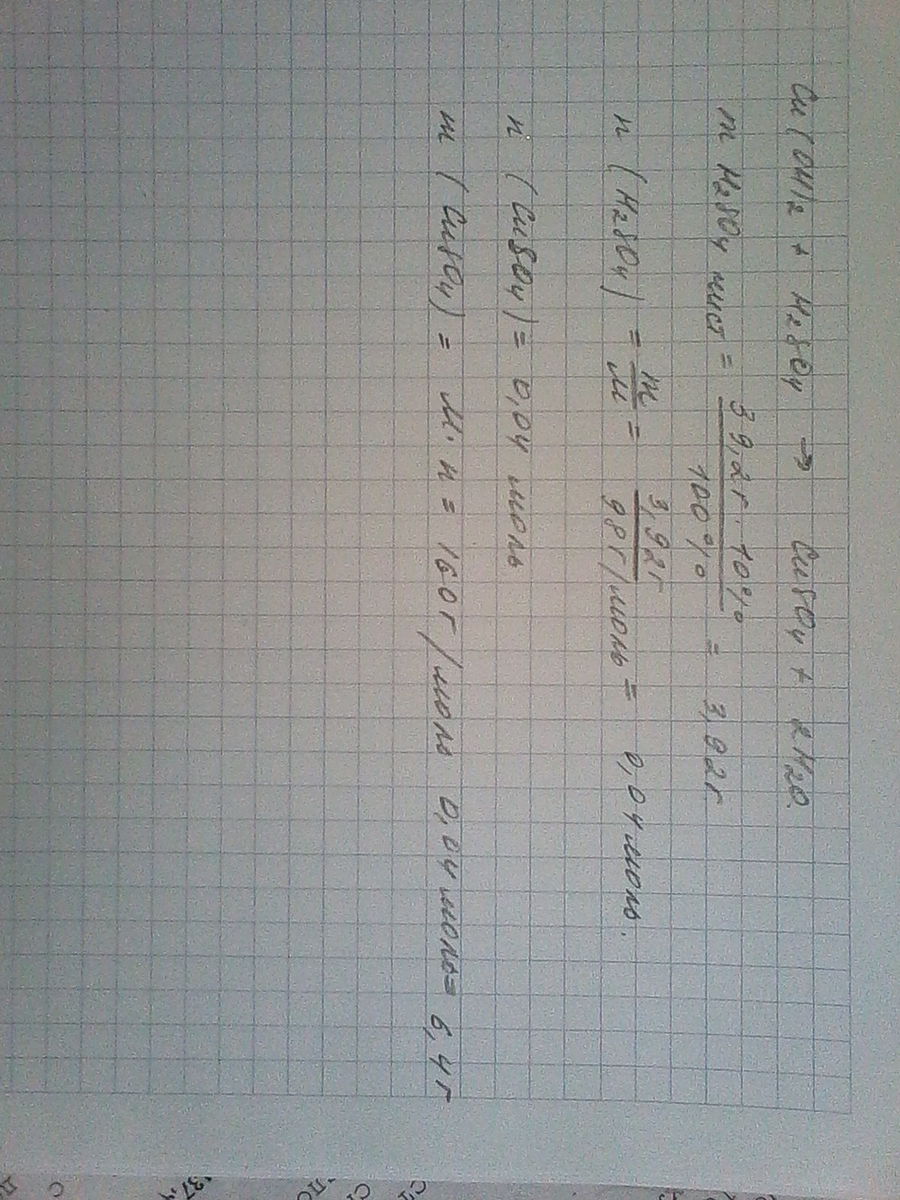 Cu(OH)2 + H2SO4 → CuSO4 + 2H2O.
m H2SO4 чист = 39,2г · 10% / 100% = 3,92г
n (H2SO4) = m/M = 3,92г / 98г/моль = 0,04 моль.
n (CuSO4) = 0,04 моль
m (CuSO4) = M · n = 160г/моль 0,04 моль = 6,4г